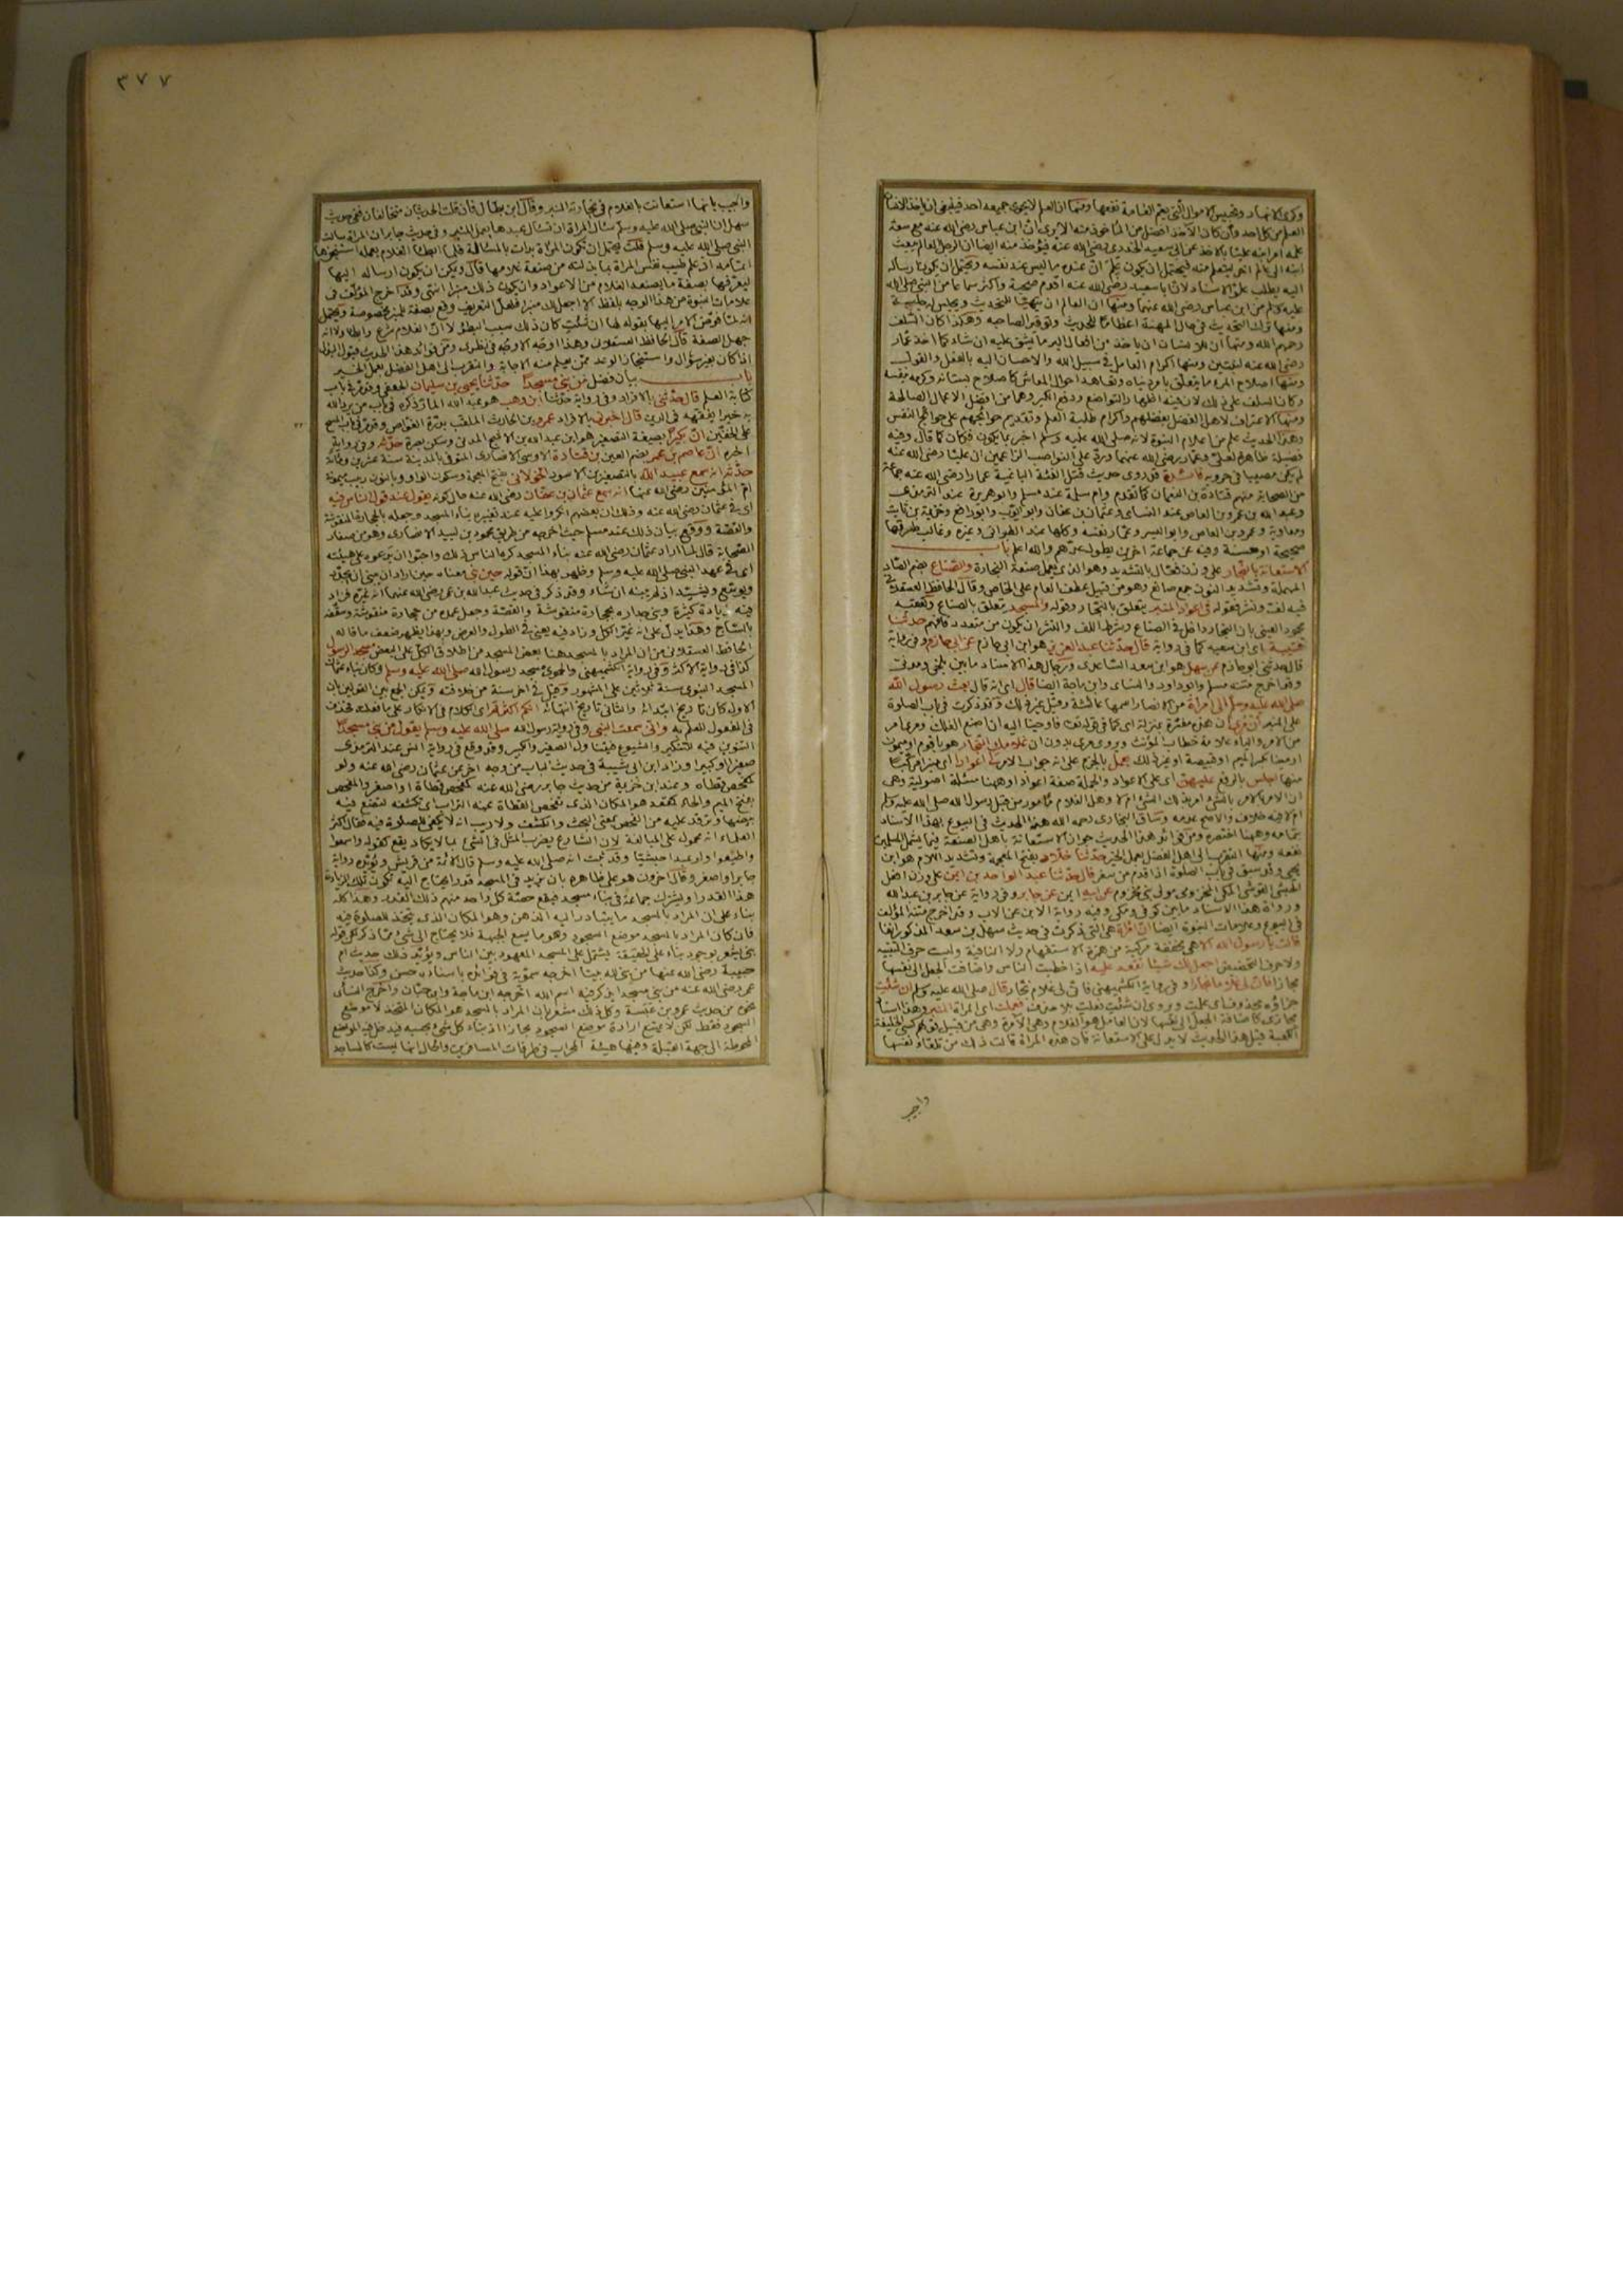 ٣٧٧
وكرى الانهار وتحبيس الاموال التى يعم العامة نفعها ومنها ان العلم لا يحوى جميعه احد فينبغى ان ياخذ الانسان
العلم من كل احد وان كان الآخذ افضل من المأخوذ منه الا يرى ان ابن عباس رضى الله عنه مع سعة
علمه امر ابنه عليا بالاخذ عن ابى سعيد الخدرى رضى الله عنه فيؤخذ منه ايضا ان الرجل العالم يبعث
ابنه الى عالم آخر ليتعلم منه ليحتمل ان يكون علم ان عنده ما ليس عند نفسه ويحتمل ان يكون ارساله
اليه يطلب علو الاسناد لان ابا سعيد رضى الله عنه اقدم صحبة واكثر سماعا من النبى صلى الله
عليه وسلم من ابن عباس رضى الله عنهما ومنها ان العالم ان يتهيأ للتحديث ويجلس له جلسة
ومنها ترك التحديث فى حال المهنة اعظاما للحديث وتوقيرا لصاحبه وهكذا كان السلف
رحمهم الله ومنها ان للانسان ان ياخذ من افعال البر ما يشق عليه ان شاء كما اخذ عمار
رضى الله عنه لبنتين ومنها اكرام العامل فى سبيل الله والاحسان اليه بالفعل والقول
ومنها اصلاح المرء ما يتعلق بامر دنياه وتعاهد احوال المعاش كاصلاح بستانه وكرمه بنفسه
وكان السلف على ذلك لان فيه اظهار التواضع ودفع الكبر وهما من افضل الاعمال الصالحة
ومنها الاعتراف لاهل الفضل بفضلهم واكرام طلبة العلم وتقديم حوائجهم على حوائج النفس
وهذا الحديث علم من اعلام النبوة لانه صلى الله عليه وسلم اخبر بما يكون فكان كما قال وفيه
فضيلة ظاهرة لعلى وعمار رضى الله عنهما ورد على النواصب الزاعمين ان عليا رضى الله عنه
لم يكن مصيبا فى حروبه فائدة قد روى حديث قتل الفئة الباغية عمارا رضى الله عنه جماعة
من الصحابة منهم قتادة بن النعمان كما تقدم وام سلمة عند مسلم وابو هريرة عند الترمذى
وعبد الله بن عمرو بن العاص عند النسائى وعثمان بن عفان وابو ايوب وابو رافع وخزيمة بن ثابت
ومعاوية وعمرو بن العاص وابو اليسر وعمار نفسه وكلها عند الطبرانى وغيره وغالب طرقها
صحيحة او حسنة وفيه عن جماعة اخرين يطول عدهم والله اعلم باب
الاستعانة بالنجار على وزن فعال بالتشديد وهو الذى يعمل صنعة النجارة والصناع بضم الصاد
المهملة وتشديد النون جمع صانع وهو من قبيل عطف العام على الخاص وقال الحافظ العسقلانى
فيه لف ونشر فقوله فى اعواد المنبر يتعلق بالنجار وقوله والمسجد يتعلق بالصناع وتعقبه
محمود العينى بان النجار داخل فى الصناع وشرط اللف والنشر ان يكون من متعدد فافهم حدثنا
قتيبة اى ابن سعيد كما فى رواية قال حدثنا عبد العزيز هو ابن ابى حازم عن ابى حازم وفى رواية
قال حدثنى ابو حازم عن سهل هو ابن سعد الساعدى ورجال هذا الاسناد ما بين بلخى ومدنى
وقد اخرج متنه مسلم وابو داود والنسائى وابن ماجة ايضا قال اى انه قال بعث رسول الله
صلى الله عليه وسلم الى امرأة من الانصار اسمها عائشة وقيل غير ذلك وقد ذكرت فى باب الصلوة
على المنبر ان مرى ان هذه مفسرة بمنزلة اى كما فى قوله تعالى فاوحينا اليه ان اصنع الفلك ومرى امر
من الامر والياء علامة خطاب المؤنث ويروى مرى بدون ان غلامك النجار هو باقوم او ميمون
او مينا بكسر الميم او قبيصة او غير ذلك يعمل بالجزم على انه جواب الامر لى اعوادا اى منبرا مركبا
منها اجلس بالرفع عليهن اى على الاعواد والجملة صفة اعوادا وههنا مسئلة اصولية وهى
ان الامر بالامر بالشئ امر بذلك الشئ ام لا وهل الغلام مأمور من قبل رسول الله صلى الله عليه وسلم
ام لا فيه خلاف والاصح عدمه وساق البخارى رحمه الله هذا الحديث فى البيوع بهذا الاسناد
بتمامه وههنا اختصره ومن فوائد هذا الحديث جواز الاستعانة باهل الصنعة فيما يشمل المسلمين
نفعه ومنها التقرب الى اهل الفضل بعمل الخير حدثنا خلاد بفتح المعجمة وتشديد اللام هو ابن
يحيى وقد سبق فى باب الصلوة اذا قدم من سفر قال حدثنا عبد الواحد بن ايمن على وزن افعل
الحبشى القرشى المكى المخزومى مولى بنى مخزوم عن ابيه ايمن عن جابر وفى رواية عن جابر بن عبد الله
ورواة هذا الاسناد ما بين كوفى ومكى وفيه رواية الابن عن الاب وقد اخرج متنه المؤلف
فى البيوع وعلامات النبوة ايضا ان امرأة هى التى ذكرت فى حديث سهل بن سعد المذكور انفا
قالت يا رسول الله الا هى مخففة مركبة من همزة الاستفهام ولا النافية وليست حرف التنبيه
ولا حرف التحضيض اجعل لك شيئا تقعد عليه اذا خطبت الناس واضافت الجعل الى نفسها
مجازا فان لى غلاما نجارا وفى رواية الكشميهنى فان لى غلام نجار قال صلى الله عليه وسلم ان شئت
جزاؤه محذوف اى عملت ويروى ان شئت فعلت بلا حذف فعملت اى المرأة المنبر وهذا اسناد
مجازى كاضافة الجعل الى نفسها لان العامل هو الغلام وهى الآمرة وهى من قبيل قولهم كسى الخليفة
الكعبة قيل هذا الحديث لا يدل على الاستعانة فان هذه المرأة قالت ذلك من تلقاء نفسها
واجيب
واجيب بانها استعانت بالغلام فى نجارته المنبر وقال ابن بطال فان قلت الحديثان متخالفان ففى حديث
سهل ان النبى صلى الله عليه وسلم سئال المرأة ان تسئال عبدها بعمل المنبر وفى حديث جابر ان المرأة سالت
النبى صلى الله عليه وسلم قلت يحتمل ان تكون المرأة بدات بالمسئالة فلما ابطأ الغلام بعمله استنجزها
اتمامه اذ علم طيب نفس المرأة بما بذلته من صنعة غلامها قال ويمكن ان يكون ارساله اليها
ليعرفها بصفة ما يصنعه الغلام من الاعواد وان يكون ذلك منبرا انتهى وقد اخرج المؤلف فى
علامات النبوة من هذا الوجه بلفظ الا اجعل لك منبرا فلعل التعريف وقع بصفة للمنبر مخصوصة ويحتمل
انه لما فوض الامر اليها بقوله لها ان شئت كان ذلك سبب البطؤ لا ان الغلام شرع وابطأ ولا انه
جهل الصفة قال الحافظ العسقلانى وهذا اوجه الاوجه فى نظرى ومن فوائد هذا الحديث قبول البذل
اذا كان بغير سؤال واستنجاز الوعد ممن يعلم منه الاجابة والتقرب الى اهل الفضل بعمل الخير
باب بيان فضل من بنى مسجدا حدثنا يحيى بن سليمان الجعفى وقد مر فى باب
كتابة العلم قال حدثنى بالافراد وفى رواية حدثنا ابن وهب هو عبد الله المار ذكره فى باب من يرد الله
به خيرا يفقهه فى الدين قال اخبرنى بالافراد عمرو بن الحارث الملقب بدرة الغواص وقد مر فى باب المسح
على الخفين ان بكيرا بصيغة التصغير هو ابن عبد الله بن الاشج المدنى وسكن بصرة حدثه وفى رواية
اخبره ان عاصم بن عمر بضم العين بن قتادة الاوسى الانصارى المتوفى بالمدينة سنة عشرين ومائة
حدثه انه سمع عبيد الله بالتصغير بن الاسود الخولانى بفتح المعجمة وسكون الواو وبالنون ربيب ميمونة
ام المؤمنين رضى الله عنها انه سمع عثمان بن عفان رضى الله عنه حال كونه يقول عند قول الناس فيه
اى فى عثمان رضى الله عنه وذلك ان بعضهم انكروا عليه عند تغييره بناء المسجد وجعله بالحجارة المنقوشة
والقصة ووقع بيان ذلك عند مسلم حيث اخرجه من طريق محمود بن لبيد الانصارى وهو من صغار
الصحابة قال لما اراد عثمان رضى الله عنه بناء المسجد كره الناس ذلك واحبوا ان يدعوه على هيئته
اى فى عهد النبى صلى الله عليه وسلم وظهر بهذا ان قوله حين بنى معناه حين اراد ان يبنى
فيه زيادة كثيرة وبنى جداره بحجارة منقوشة والقصة وجعل عمده من حجارة منقوشة وسقفه
بالساج وهذا يدل على انه غير الكل وزاد فيه يعنى فى الطول والعرض وبهذا يظهر ضعف ما قاله
الحافظ العسقلانى من ان المراد بالمسجد هنا بعض المسجد من اطلاق الكل على البعض مسجد الرسول
كذا فى رواية الاكثر وفى رواية الكشميهنى والحموى مسجد رسول الله صلى الله عليه وسلم وكان بناء عثمان
المسجد النبوى سنة ثلاثين على المشهور وقيل فى آخر سنة من خلافته ويمكن الجمع بين القولين بان
الاول كان تاريخ ابتدائه والثانى تاريخ انتهائه انكم اكثرتم اى الكلام فى الانكار على ما فعلته فحذف
المفعول للعلم به وانى سمعت النبى وفى رواية رسول الله صلى الله عليه وسلم يقول من بنى مسجدا
التنوين فيه للتنكير والشيوع فيتناول الصغير والكبير وقد وقع فى رواية انس عند الترمذى
صغيرا او كبيرا وزاد ابن ابى شيبة فى حديث الباب من وجه اخر عن عثمان رضى الله عنه ولو
كمفحص قطاة وعند ابن خزيمة من حديث جابر رضى الله عنه كمفحص قطاة او اصغر والمفحص
بفتح الميم والحاء كمقعد هو المكان الذى تفحص القطاة عنه التراب اى تكشفه لتضع فيه
بيضها وترقد عليه من الفحص بمعنى البحث والكشف ولا ريب انه لا يكفى للصلوة فيه فقال اكثر
العلماء انه محمول على المبالغة لان الشارع يضرب المثل فى الشئ بما لا يكاد يقع كقوله واسمعوا
واطيعوا ولو عبدا حبشيا وقد ثبت انه صلى الله عليه وسلم قال الائمة من قريش ويؤيده رواية
جابر او اصغر وقال آخرون هو على ظاهره بان يزيد فى المسجد قدرا يحتاج اليه تكون تلك الزيادة
هذا القدر او يشترك جماعة فى بناء مسجد فيقع حصة كل واحد منهم ذلك القدر وهذا كله
بناء على ان المراد بالمسجد ما يتبادر اليه الذهن وهو المكان الذى يتخذ للصلوة فيه
فان كان المراد بالمسجد موضع السجود وهو ما يسع الجبهة فلا يحتاج الى شئ مما ذكر لكن قوله
بنى يشعر بوجود بناء على الحقيقة يشتمل على المسجد المعهود بين الناس ويؤيد ذلك حديث ام
حبيبة رضى الله عنها من بنى لله بيتا اخرجه سمويه فى فوائده باسناد حسن وكذا حديث
عمر رضى الله عنه من بنى مسجدا يذكر فيه اسم الله اخرجه ابن ماجة وابن حبان واخرج النسائى
نحوه من حديث عمرو بن عبسة وكل ذلك مشعر بان المراد بالمسجد هو المكان المتخذ لا موضع
السجود فقط لكن لا يمتنع ارادة موضع السجود مجازا اذ بناء كل شئ بحسبه فيدخل فيه المواضع
المحوطة الى جهة القبلة وفيها هيئة المحراب فى طرقات المسافرين والحال انها ليست كالمساجد